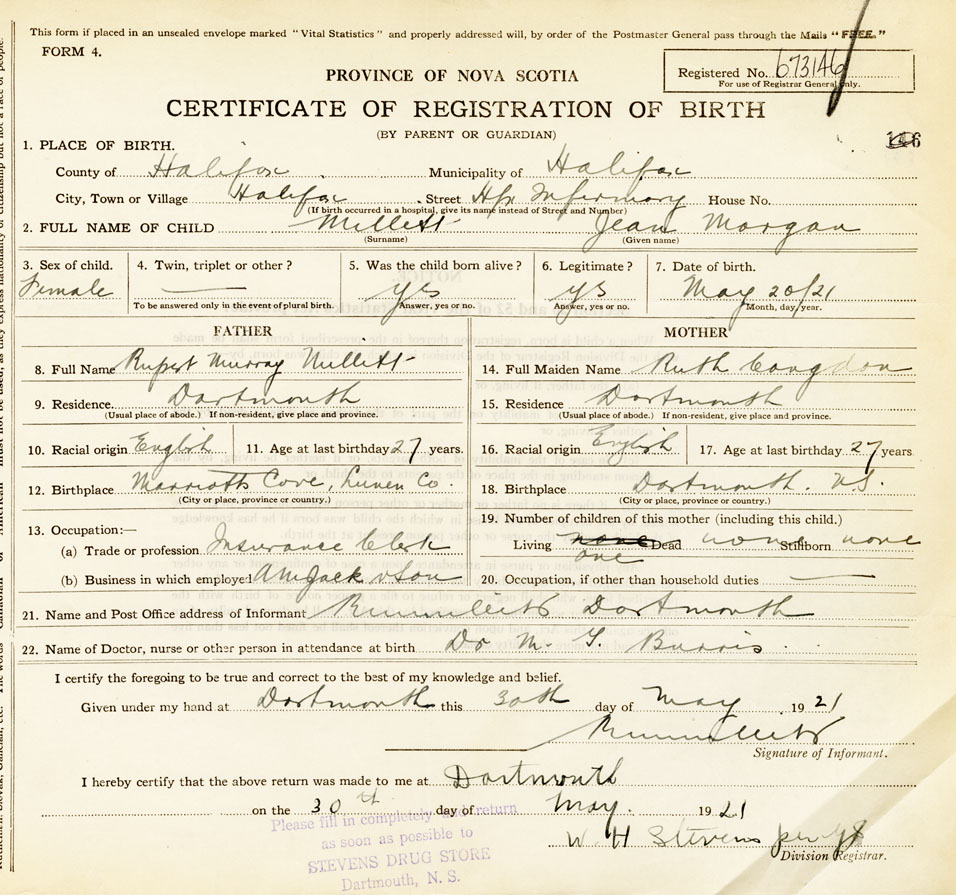 This form if placed in an unsealed envelope marked "Vital Statistics" and properly addressed will, by order of the Postmaster General pass through the Mails "FREE."
FORM 4.
Registered No. 673146
For use of Registrar General only.
PROVINCE OF NOVA SCOTIA
CERTIFICATE OF REGISTRATION OF BIRTH
(BY PARENT OR GUARDIAN)
1. PLACE OF BIRTH.
County of Halifax Municipality of Halifax
City, Town or Village Halifax Street Hfx Infirmary House No.
(If birth occurred in a hospital, give its name instead of Street and Number)
2. FULL NAME OF CHILD Millett Jean Morgan
(Surname) (Given name)
3. Sex of child. 4. Twin, triplet or other? 5. Was the child born alive? 6. Legitimate? 7. Date of birth.
Female yes ys May 20/21
To be answered only in the event of plural birth. Answer, yes or no. Answer, yes or no. Month, day, year.
FATHER
8. Full Name Rupert Murray Millett
9. Residence Dartmouth
(Usual place of abode.) If non-resident, give place and province.
10. Racial origin English 11. Age at last birthday 27 years
12. Birthplace Marriotts Cove, Lunen Co.
(City or place, province or country.)
13. Occupation:—
(a) Trade or profession Insurance Clerk
(b) Business in which employed Jack & Son
MOTHER
14. Full Maiden Name Ruth Congdon
15. Residence Dartmouth
(Usual place of abode.) If non-resident, give place and province.
16. Racial origin English 17. Age at last birthday 27 years
18. Birthplace Dartmouth. N.S.
(City or place, province or country.)
19. Number of children of this mother (including this child.)
Living none one Dead none Stillborn none
20. Occupation, if other than household duties
21. Name and Post Office address of Informant Dartmouth
22. Name of Doctor, nurse or other person in attendance at birth Dr M. G. Burris
I certify the foregoing to be true and correct to the best of my knowledge and belief.
Given under my hand at Dartmouth this 30th day of May 1921
Signature of Informant.
I hereby certify that the above return was made to me at Dartmouth
on the 30th day of May. 1921
W H Stevens
Division Registrar.
Please fill in completely and return
as soon as possible to
STEVENS DRUG STORE
Dartmouth, N. S.